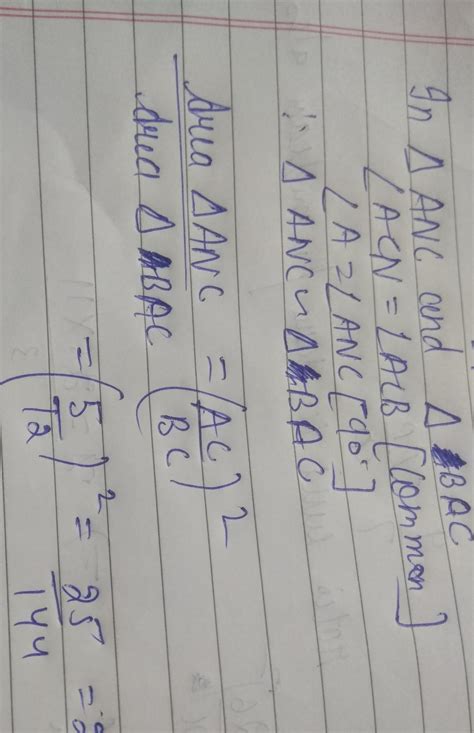 In △ ANC and △ BAC
∠ACN = ∠ACB [common]
∠A = ∠ANC [90°]
∴ △ ANC ~ △ BAC
Area △ ANC = (AC)²
Area △ BAC (BC)
= (5/12)² = 25/144 =